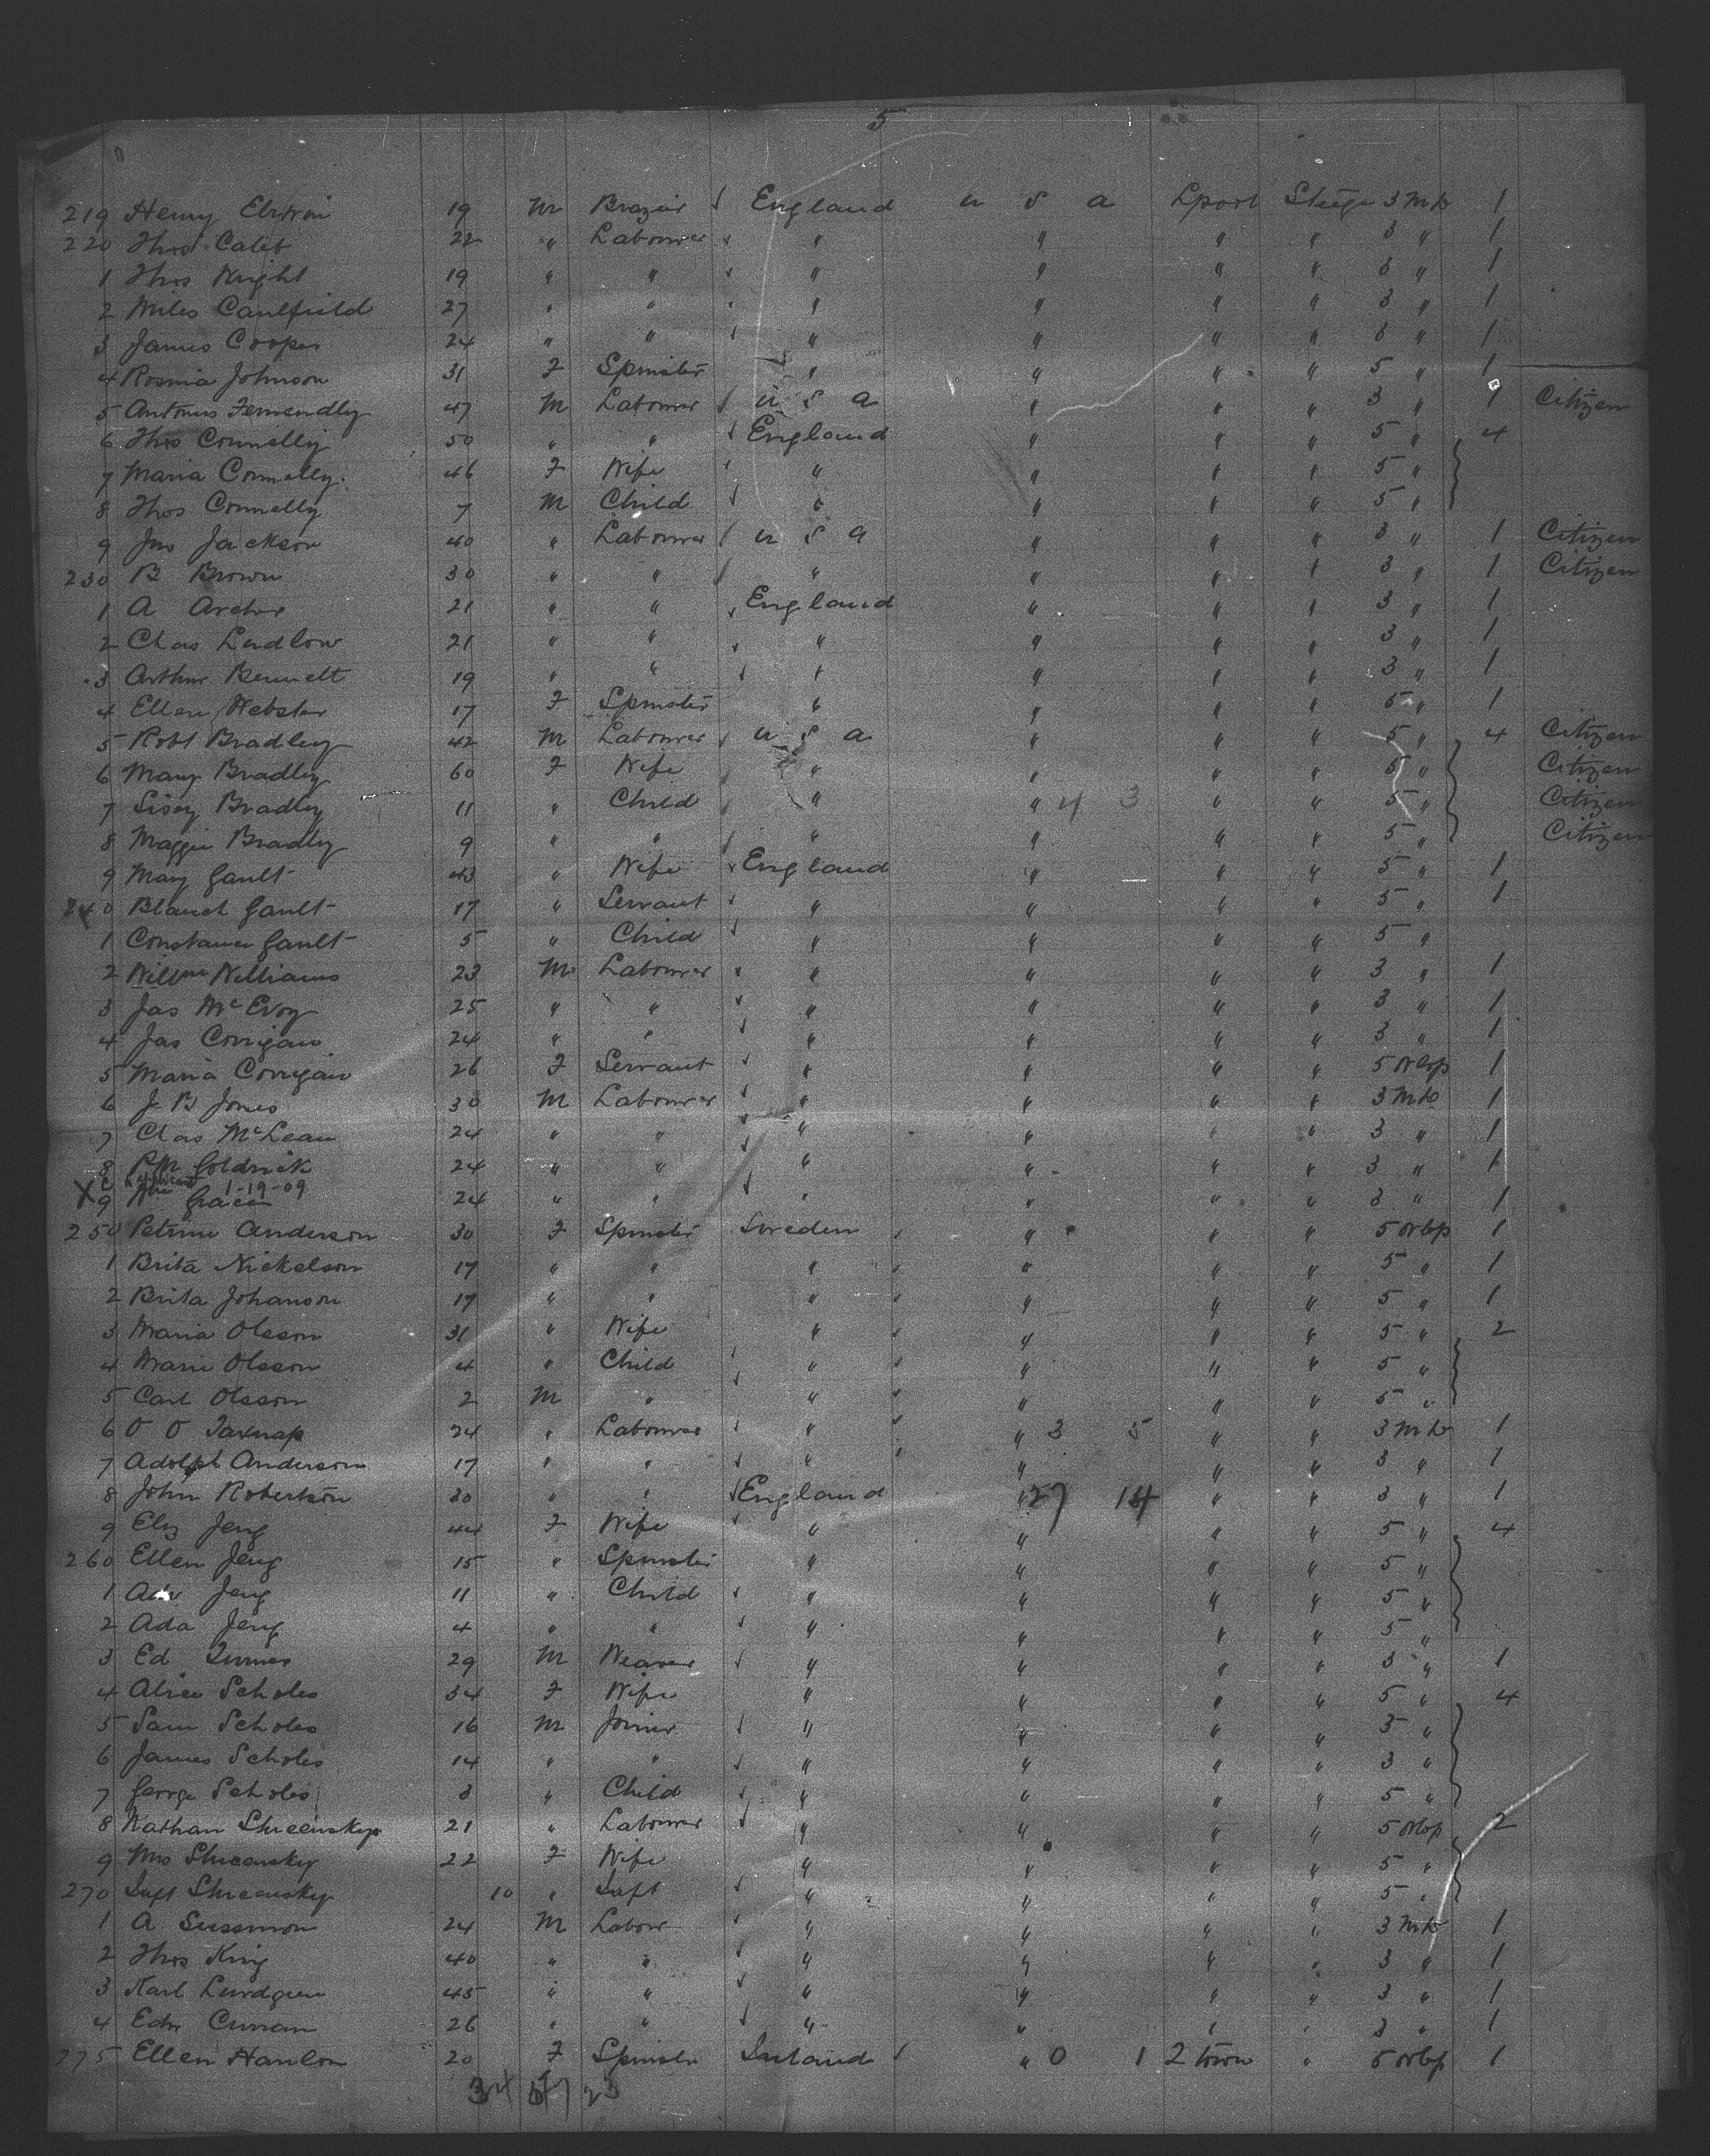 5
219 Henry Elswin 19 M Brazier England U S A Lpool Steige 3 Mk 1
220 Thos Calet 22 " Labourer " " " " 3 " 1
1 Thos Wright 19 " " " " " " 3 " 1
2 Miles Caulfield 27 " " " " " " 3 " 1
3 James Cooper 24 " " " " " " 3 " 1
4 Rosina Johnson 31 F Spinster " " " " 5 " 1
5 Antonus Fernendly 47 M Labourer U S A " " " 3 " 1 Citizen
6 Thos Connelly 50 " " England " " " 5 " 4
7 Maria Connelly 46 F Wife " " " " 5 "
8 Thos Connelly 7 M Child " " " " 5 "
9 Jno Jackson 40 " Labourer U S A " " " 3 " 1 Citizen
230 B Brown 30 " " " " " " 3 " 1 Citizen
1 A Archer 21 " " England " " " 3 " 1
2 Chas Ludlow 21 " " " " " " 3 " 1
3 Arthur Bennett 19 " " " " " " 3 " 1
4 Ellen Webster 17 F Spinster " " " " 5 " 1
5 Robt Bradley 42 M Labourer U S A " " " 5 " 4 Citizen
6 Mary Bradley 60 F Wife " " " " 5 " Citizen
7 Lisey Bradley 11 " Child " " 4 3 " " 5 " Citizen
8 Maggie Bradley 9 " " " " " " 5 " Citizen
9 Mary Gault 43 " Wife England " " " 5 " 1
240 Blanch Gault 17 " Servant " " " " 5 " 1
1 Constance Gault 5 " Child " " " " 5 "
2 Willm Williams 23 M Labourer " " " " 3 " 1
3 Jas McEvoy 25 " " " " " " 3 " 1
4 Jas Corrigan 24 " " " " " " 3 " 1
5 Maria Corrigan 26 F Servant " " " " 5 1
6 J B Jones 30 M Labourer " " " " 3 Mk 1
7 Chas McLean 24 " " " " " " 3 " 1
8 Goldrick 24 " " " " " " 3 " 1
X 1-19-09
9 Wm Gracie 24 " " " " " " 3 " 1
250 Petrine Anderson 30 F Spinster Sweden " " " 5 1
1 Brita Nickelson 17 " " " " " " 5 " 1
2 Brita Johanson 17 " " " " " " 5 " 1
3 Maria Olsson 31 " Wife " " " " 5 " 2
4 Marie Olsson 4 " Child " " " " 5 "
5 Carl Olsson 2 M " " " " " 5 "
6 O O 24 " Labourer " " 3 5 " " 3 Mk 1
7 Adolph Anderson 17 " " " " " " 3 " 1
8 John Robertson 30 " " England " 27 14 " " 3 " 1
9 Eliz Jeng 44 F Wife " " " " 5 " 4
260 Ellen Jeng 15 " Spinster " " " " 5 "
1 Jeng 11 " Child " " " " 5 "
2 Ada Jeng 4 " " " " " " 5 "
3 Ed 29 M Weaver " " " " 3 " 1
4 Alice Scholes 34 F Wife " " " " 5 " 4
5 Sam Scholes 16 M Joiner " " " " 3 "
6 James Scholes 14 " " " " " " 3 "
7 George Scholes 3 " Child " " " " 5 "
8 Nathan 21 " Labourer " " " " 5 2
9 Mrs 22 F Wife " " " " 5 "
270 Inft 10 " Inft " " " " 5 "
1 A Sussmon 24 M Labour " " " " 3 Mk 1
2 Thos King 40 " " " " " " 3 " 1
3 Karl Lundgren 45 " " " " " " 3 " 1
4 Edw Curran 26 " " " " " " 3 " 1
275 Ellen Hanlon 20 F Spinster Ireland " 0 1 2 town " 5 1
34 57 23